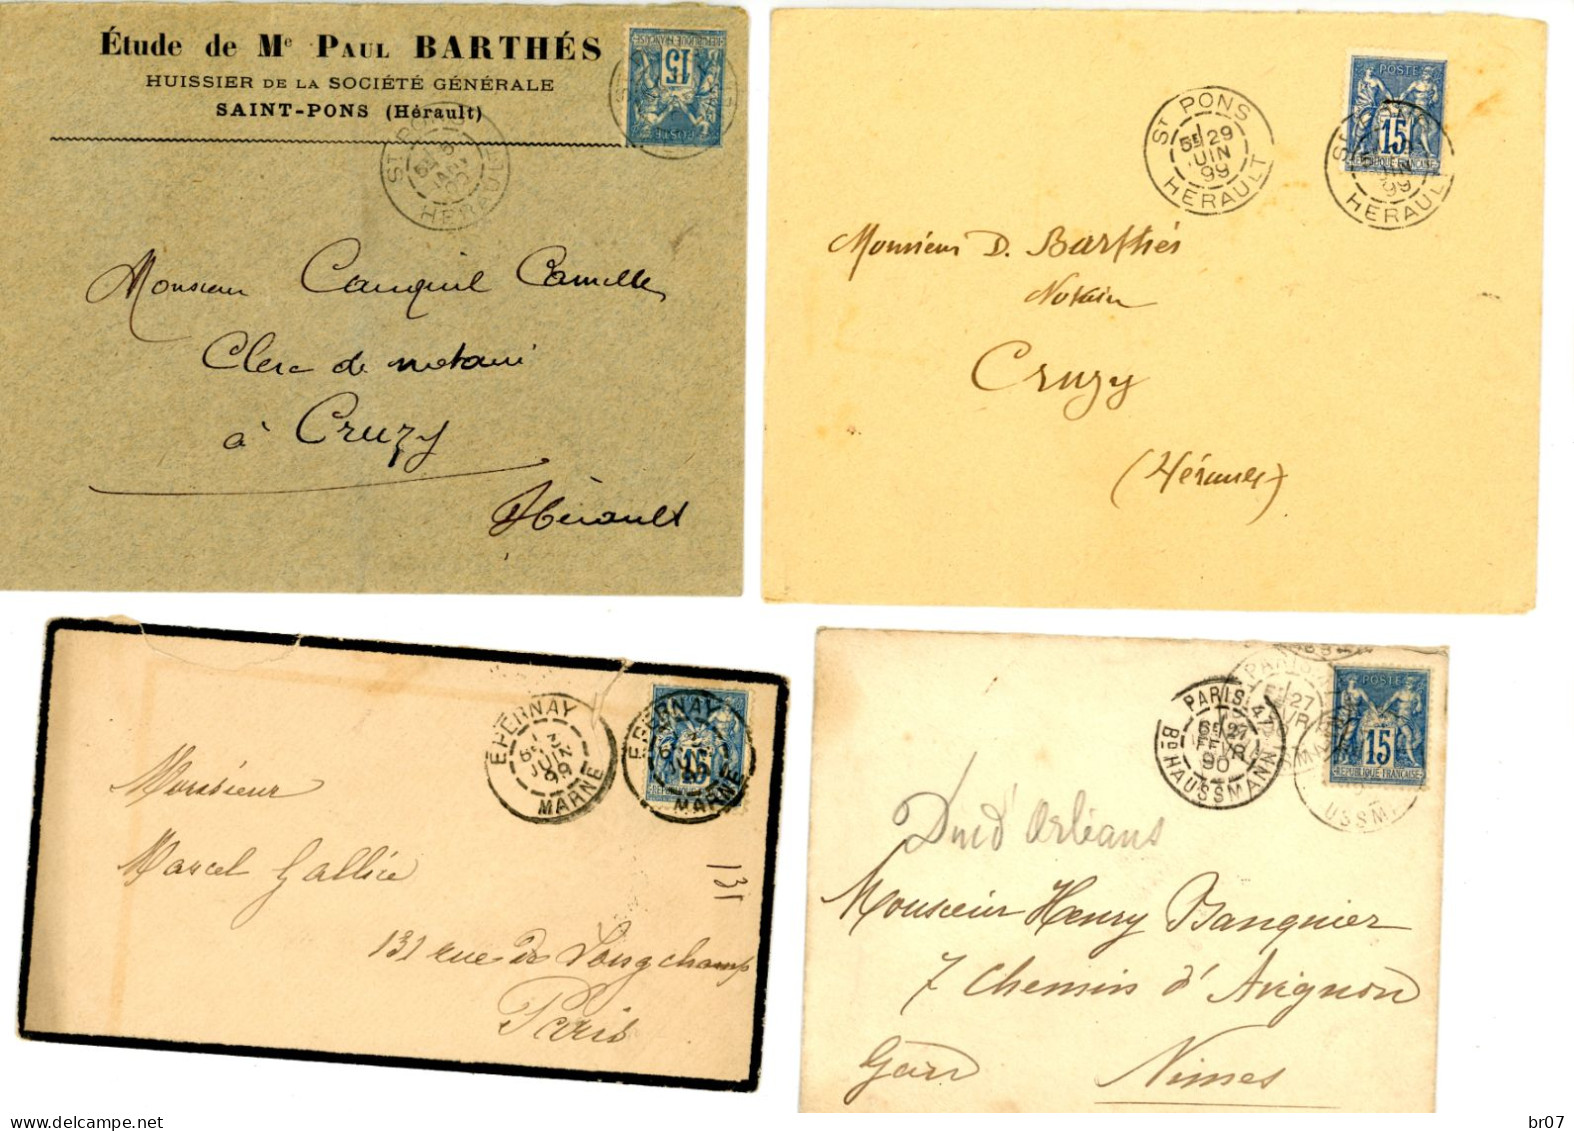 Étude de Me PAUL BARTHÉS
HUISSIER DE LA SOCIÉTÉ GÉNÉRALE
SAINT-PONS (Hérault)
REPUBLIQUE FRANÇAISE
15
POSTE
ST PONS
HERAULT
Monsieur Cauquil Camille
Clerc de notaire
à Cruzy
Hérault
ST PONS
5E 29
JUIN
99
HERAULT
POSTE
15
REPUBLIQUE FRANÇAISE
JUIN
99
HERAULT
Monsieur D. Barthés
Notaire
Cruzy
(Hérault)
EPERNAY
JUIN
99
MARNE
EPERNAY
15
MARNE
Monsieur
Marcel Gallice
131
131 rue de Longchamp
Paris
PARIS 47
6E 27
FEVR
90
BD HAUSSMANN
PARIS
27
POSTE
15
REPUBLIQUE FRANÇAISE
USSM
Duc d'Orléans
Monsieur Henry Banquier
7 Chemin d'Avignon
Gard Nimes
delcampe.net
br07